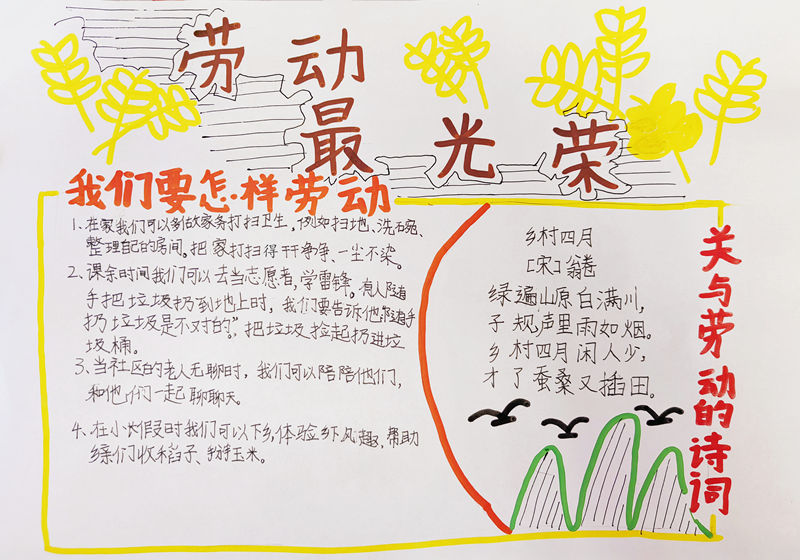 劳动
最光荣
我们要怎样劳动
1、在家我们可以多做家务打扫卫生。例如扫地、洗石碗、
整理自己的房间。把家打扫得干干净净、一尘不染。
2、课余时间我们可以去当志愿者,学雷锋。有人随
手把垃圾扔到地上时,我们要告诉他"随手
扔垃圾是不对的"。把垃圾捡起扔进垃
圾桶。
3、当社区的老人无聊时,我们可以陪陪他们,
和他们一起聊聊天。
4、在小长假时我们可以下乡,体验乡下风趣,帮助
乡亲们收稻子、掰玉米。
乡村四月
[宋]翁卷
绿遍山原白满川,
子规声里雨如烟。
乡村四月闲人少,
才了蚕桑又插田。
关与劳动的诗词